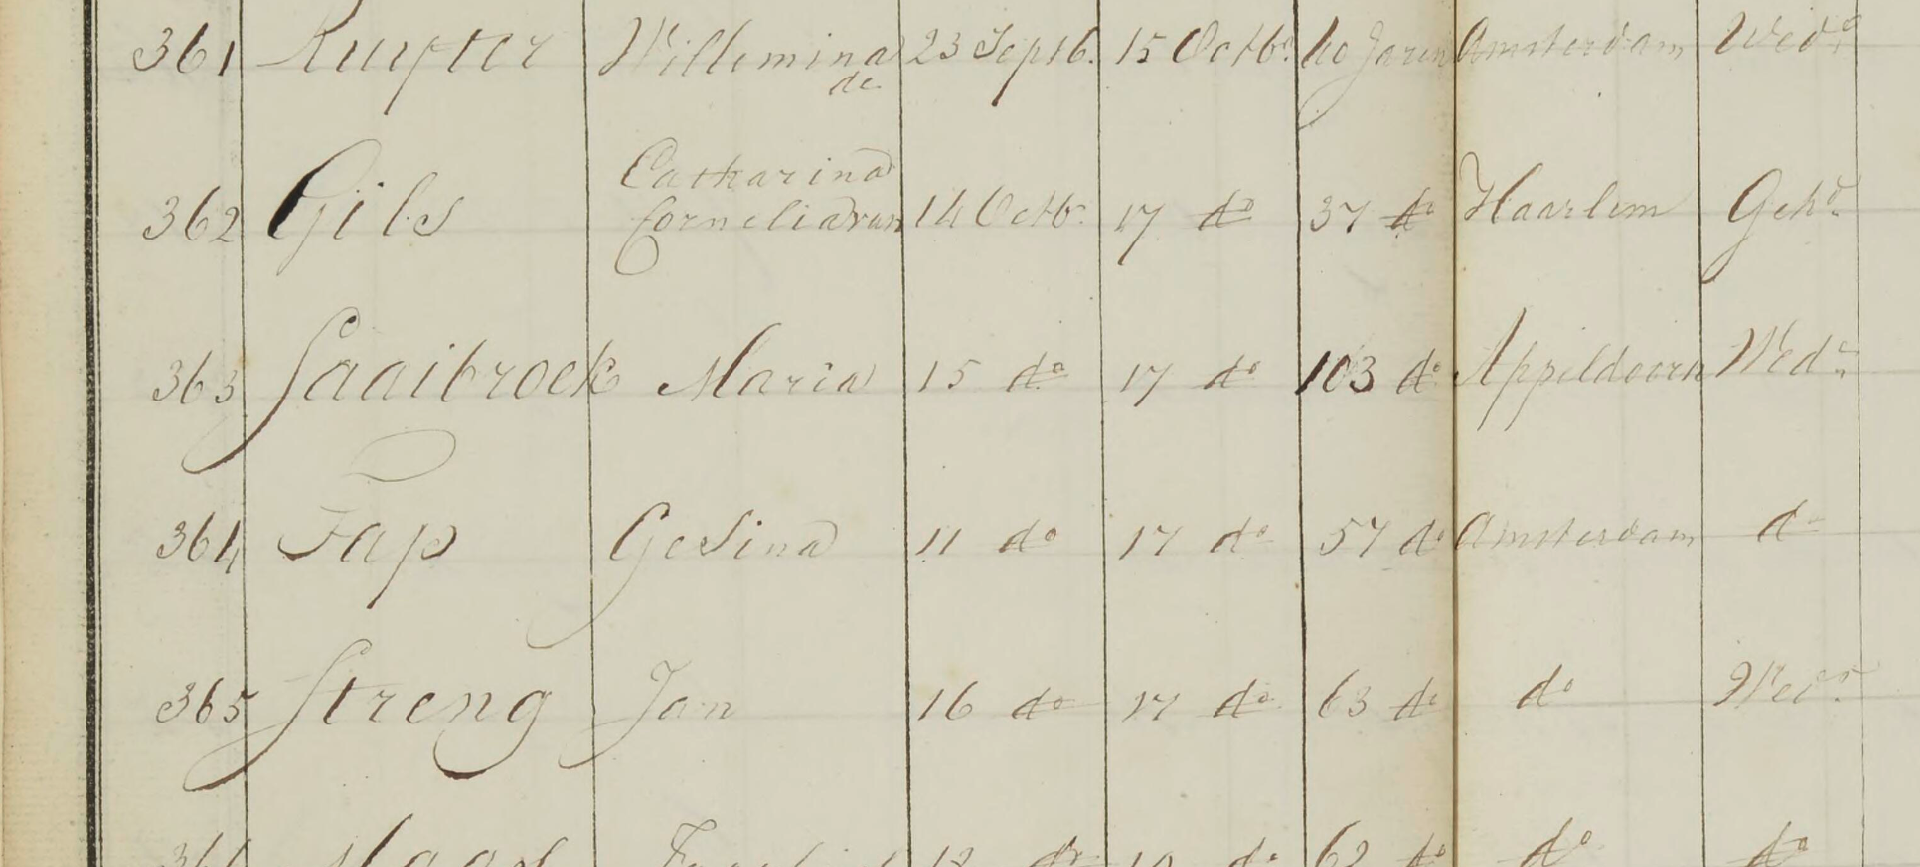 361 Ruyter Willemina de 23 Septb. 15 Octbr. 40 Jaren Amsterdam Wede.
362 Gils Catharina Cornelia van 14 Octbr. 17 do 37 do Haarlem Gehd.
363 Saaibroek Maria 15 do 17 do 103 do Appeldoorn Wede.
364 Tap Gesina 11 do 17 do 57 do Amsterdam do
365 Streng Jan 16 do 17 do 63 do do Wedr.
366 12 do do 62 do do do